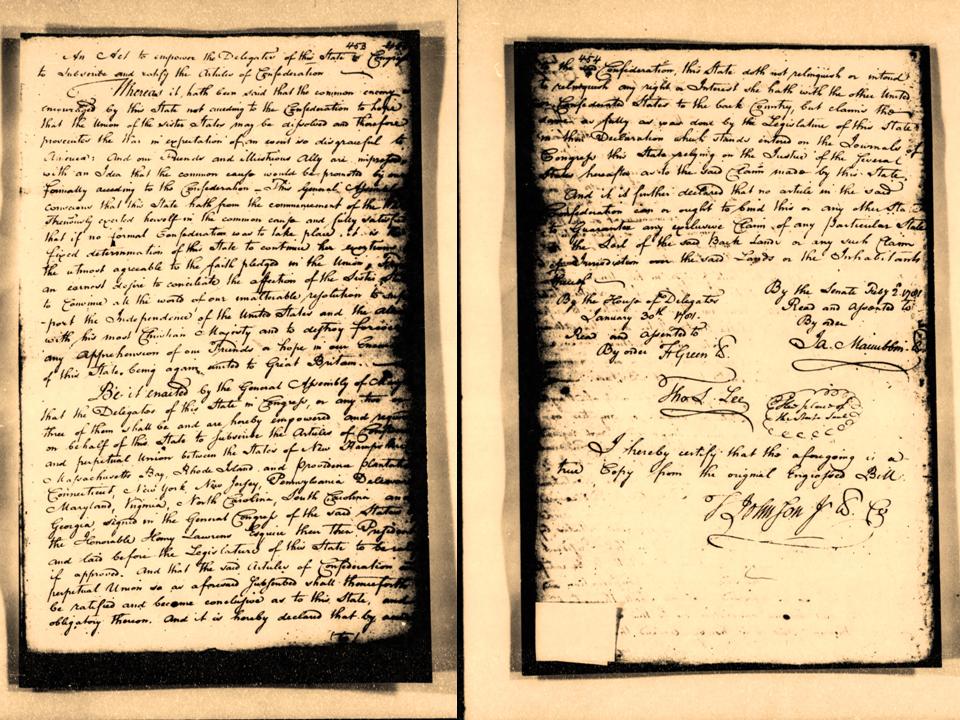 453
An Act to empower the Delegates of this State in Congress
to Subscribe and ratify the Articles of Confederation
Whereas it hath been said that the common enemy is
encouraged by this State not acceding to the Confederation to hope
that the Union of the sister States may be dissolved and therefore
prosecutes the War in expectation of an event so disgraceful to
America: And our Friends and illustrious Ally are impressed
with an Idea that the common cause would be promoted by our
formally acceding to the Confederation – This General Assembly
conscious that this State hath from the commencement of the War
Strenuously exerted herself in the common cause and fully satisfied
that if no formal Confederation was to take place it is the
fixed determination of this State to continue her exertions to
the utmost agreeable to the faith pledged in the Union, from
an earnest desire to conciliate the affection of the Sister States
to Convince all the world of our unalterable resolution to sup
-port the Independence of the United States and the Alliance
with his most Christian Majesty and to destroy forever
any Apprehension of our Friends or hope in our Enemies
of this State being again united to Great Britain.
Be it enacted by the General Assembly of Mary
that the Delegates of this State in Congress or any two or
three of them shall be and are hereby empowered and required
on behalf of this State to subscribe the Articles of Confed
and perpetual Union between the States of New Hampshire
Massachusetts Bay, Rhode Island and Providence Plantations
Connecticut, New York New Jersey, Pennsylvania Delaware
Maryland, Virginia, North Carolina, South Carolina and
Georgia signed in the General Congress of the said States
the Honorable Henry Lawrens Esquire then their President
and laid before the Legislature of this State to be
if approved. And that the said Articles of Confederation
perpetual Union so as aforesaid Subscribed shall thenceforth
be ratified and become conclusive as to this State, and
obligatory thereon. And it is hereby declared that by acc
454
to the Confederation, this State doth not relinquish or intend
to relinquish any right or Interest she hath with the other United
or Confederated States to the back Country, but claims the
same as fully as was done by the Legislature of this State
in their Declaration which stands entered on the Journals of
Congress this State relying on the Justice of the several
States hereafter as to the said Claim made by this State.
And it is further declared that no article in the said
Confederation can or ought to bind this or any other State
to Guarantee any exclusive Claim of any Particular State
the Soil of the said Back Lands or any such Claim
of Jurisdiction over the said Lands or the Inhabitants
thereof
By the House of Delegates
January 30th 1781.
Read and assented to
By order F Green
By the Senate Feby 2d. 1781
Read and Assented to
By order
Ja. Maccubbin
Tho S. Lee
The place of
the State Seal
I hereby certify that the aforegoing is a
true Copy from the original Engrossed Bill
T Johnson Jr